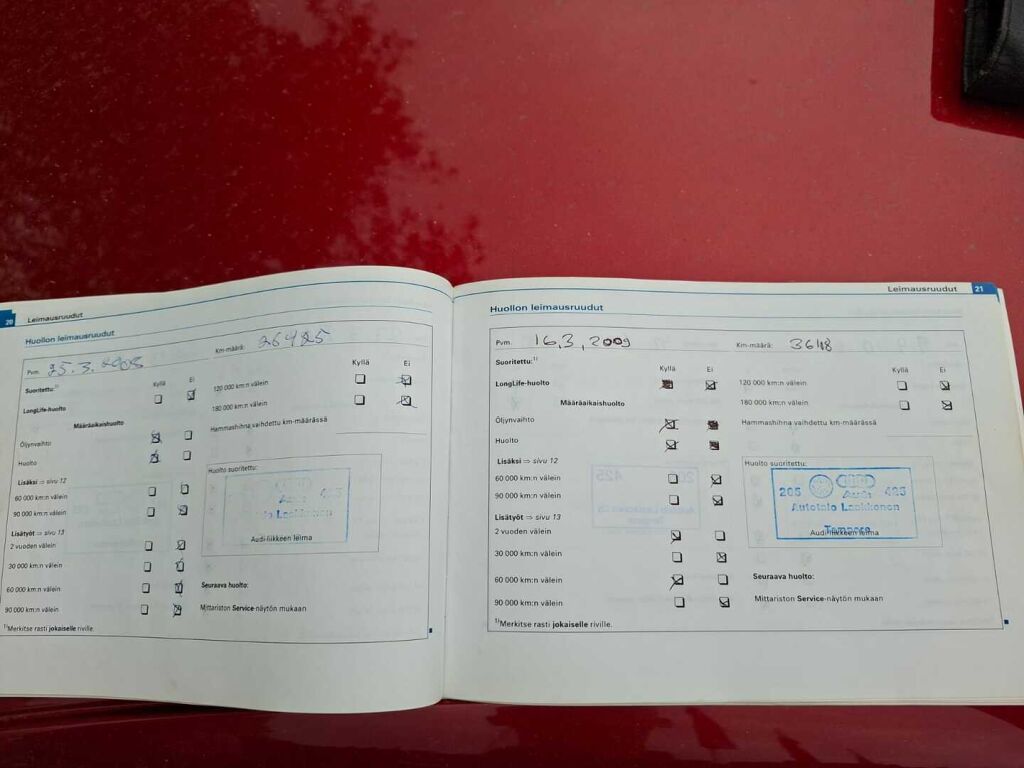 20 Leimausruudut
Huollon leimausruudut
Pvm. 25.3.2008 Km-määrä: 26485
Suoritettu:¹⁾ Kyllä Ei Kyllä Ei
LongLife-huolto 120 000 km:n välein
180 000 km:n välein
Määräaikaishuolto Hammashihna vaihdettu km-määrässä
Öljynvaihto
Huolto
Huolto suoritettu:
Lisäksi ⇒ sivu 12
60 000 km:n välein
Audi 425
90 000 km:n välein
Laakkonen
Audi-liikkeen leima
Lisätyöt ⇒ sivu 13
2 vuoden välein
30 000 km:n välein
60 000 km:n välein Seuraava huolto:
90 000 km:n välein Mittariston Service-näytön mukaan
¹⁾Merkitse rasti jokaiselle riville.
Leimausruudut 21
Huollon leimausruudut
Pvm. 16.3.2009 Km-määrä:
Suoritettu:¹⁾ Kyllä Ei Kyllä Ei
LongLife-huolto 120 000 km:n välein
Määräaikaishuolto 180 000 km:n välein
Öljynvaihto Hammashihna vaihdettu km-määrässä
Huolto
Lisäksi ⇒ sivu 12 Huolto suoritettu:
60 000 km:n välein
90 000 km:n välein
265 Audi 425
Autotalo Laakkonen
Tampere
Audi-liikkeen leima
Lisätyöt ⇒ sivu 13
2 vuoden välein
30 000 km:n välein
60 000 km:n välein Seuraava huolto:
90 000 km:n välein Mittariston Service-näytön mukaan
¹⁾Merkitse rasti jokaiselle riville.